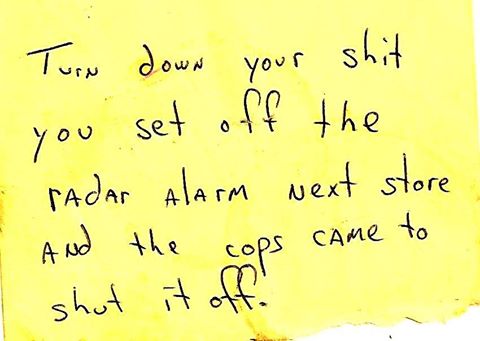 Turn down your shit
you set off the
radar alarm next store
and the cops came to
shut it off.